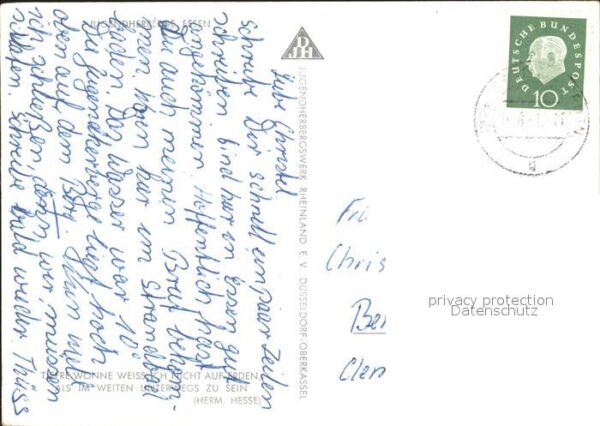 JUGENDHERBERGE ESSEN
Liebe Christel
schreibe Dir schnell ein paar Zeilen
schreiben, bin hier in Essen gut
angekommen. Hoffentlich hast
Du auch meinen Brief bekom-
men. Waren hier im Strandbad
baden. Das Wasser war 10°
Die Jugendherberge liegt hoch
oben auf dem Berg. Nun will
ich schließen denn wir müssen
schlafen. Schreibe bald wieder Tschüss
TIEFERE WONNE WEISS ICH NICHT AUF ERDEN
ALS IM WEITEN UNTERWEGS ZU SEIN
(HERM. HESSE)
DJH
JUGENDHERBERGSWERK RHEINLAND E. V. DÜSSELDORF-OBERKASSEL
DEUTSCHE BUNDESPOST
10
Frl
Chris
Ber
Clem
privacy protection
Datenschutz